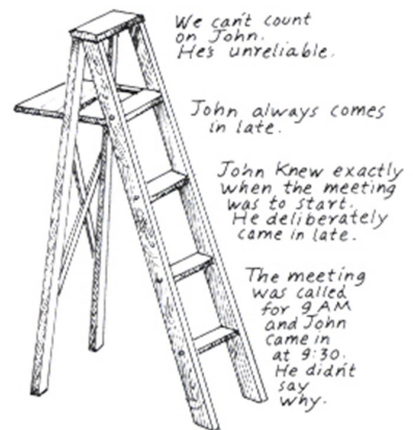 We can't count
on John.
He's unreliable.
John always comes
in late.
John Knew exactly
when the meeting
was to start.
He deliberately
came in late.
The meeting
was called
for 9 AM
and John
came in
at 9:30.
He didn't
say
why.